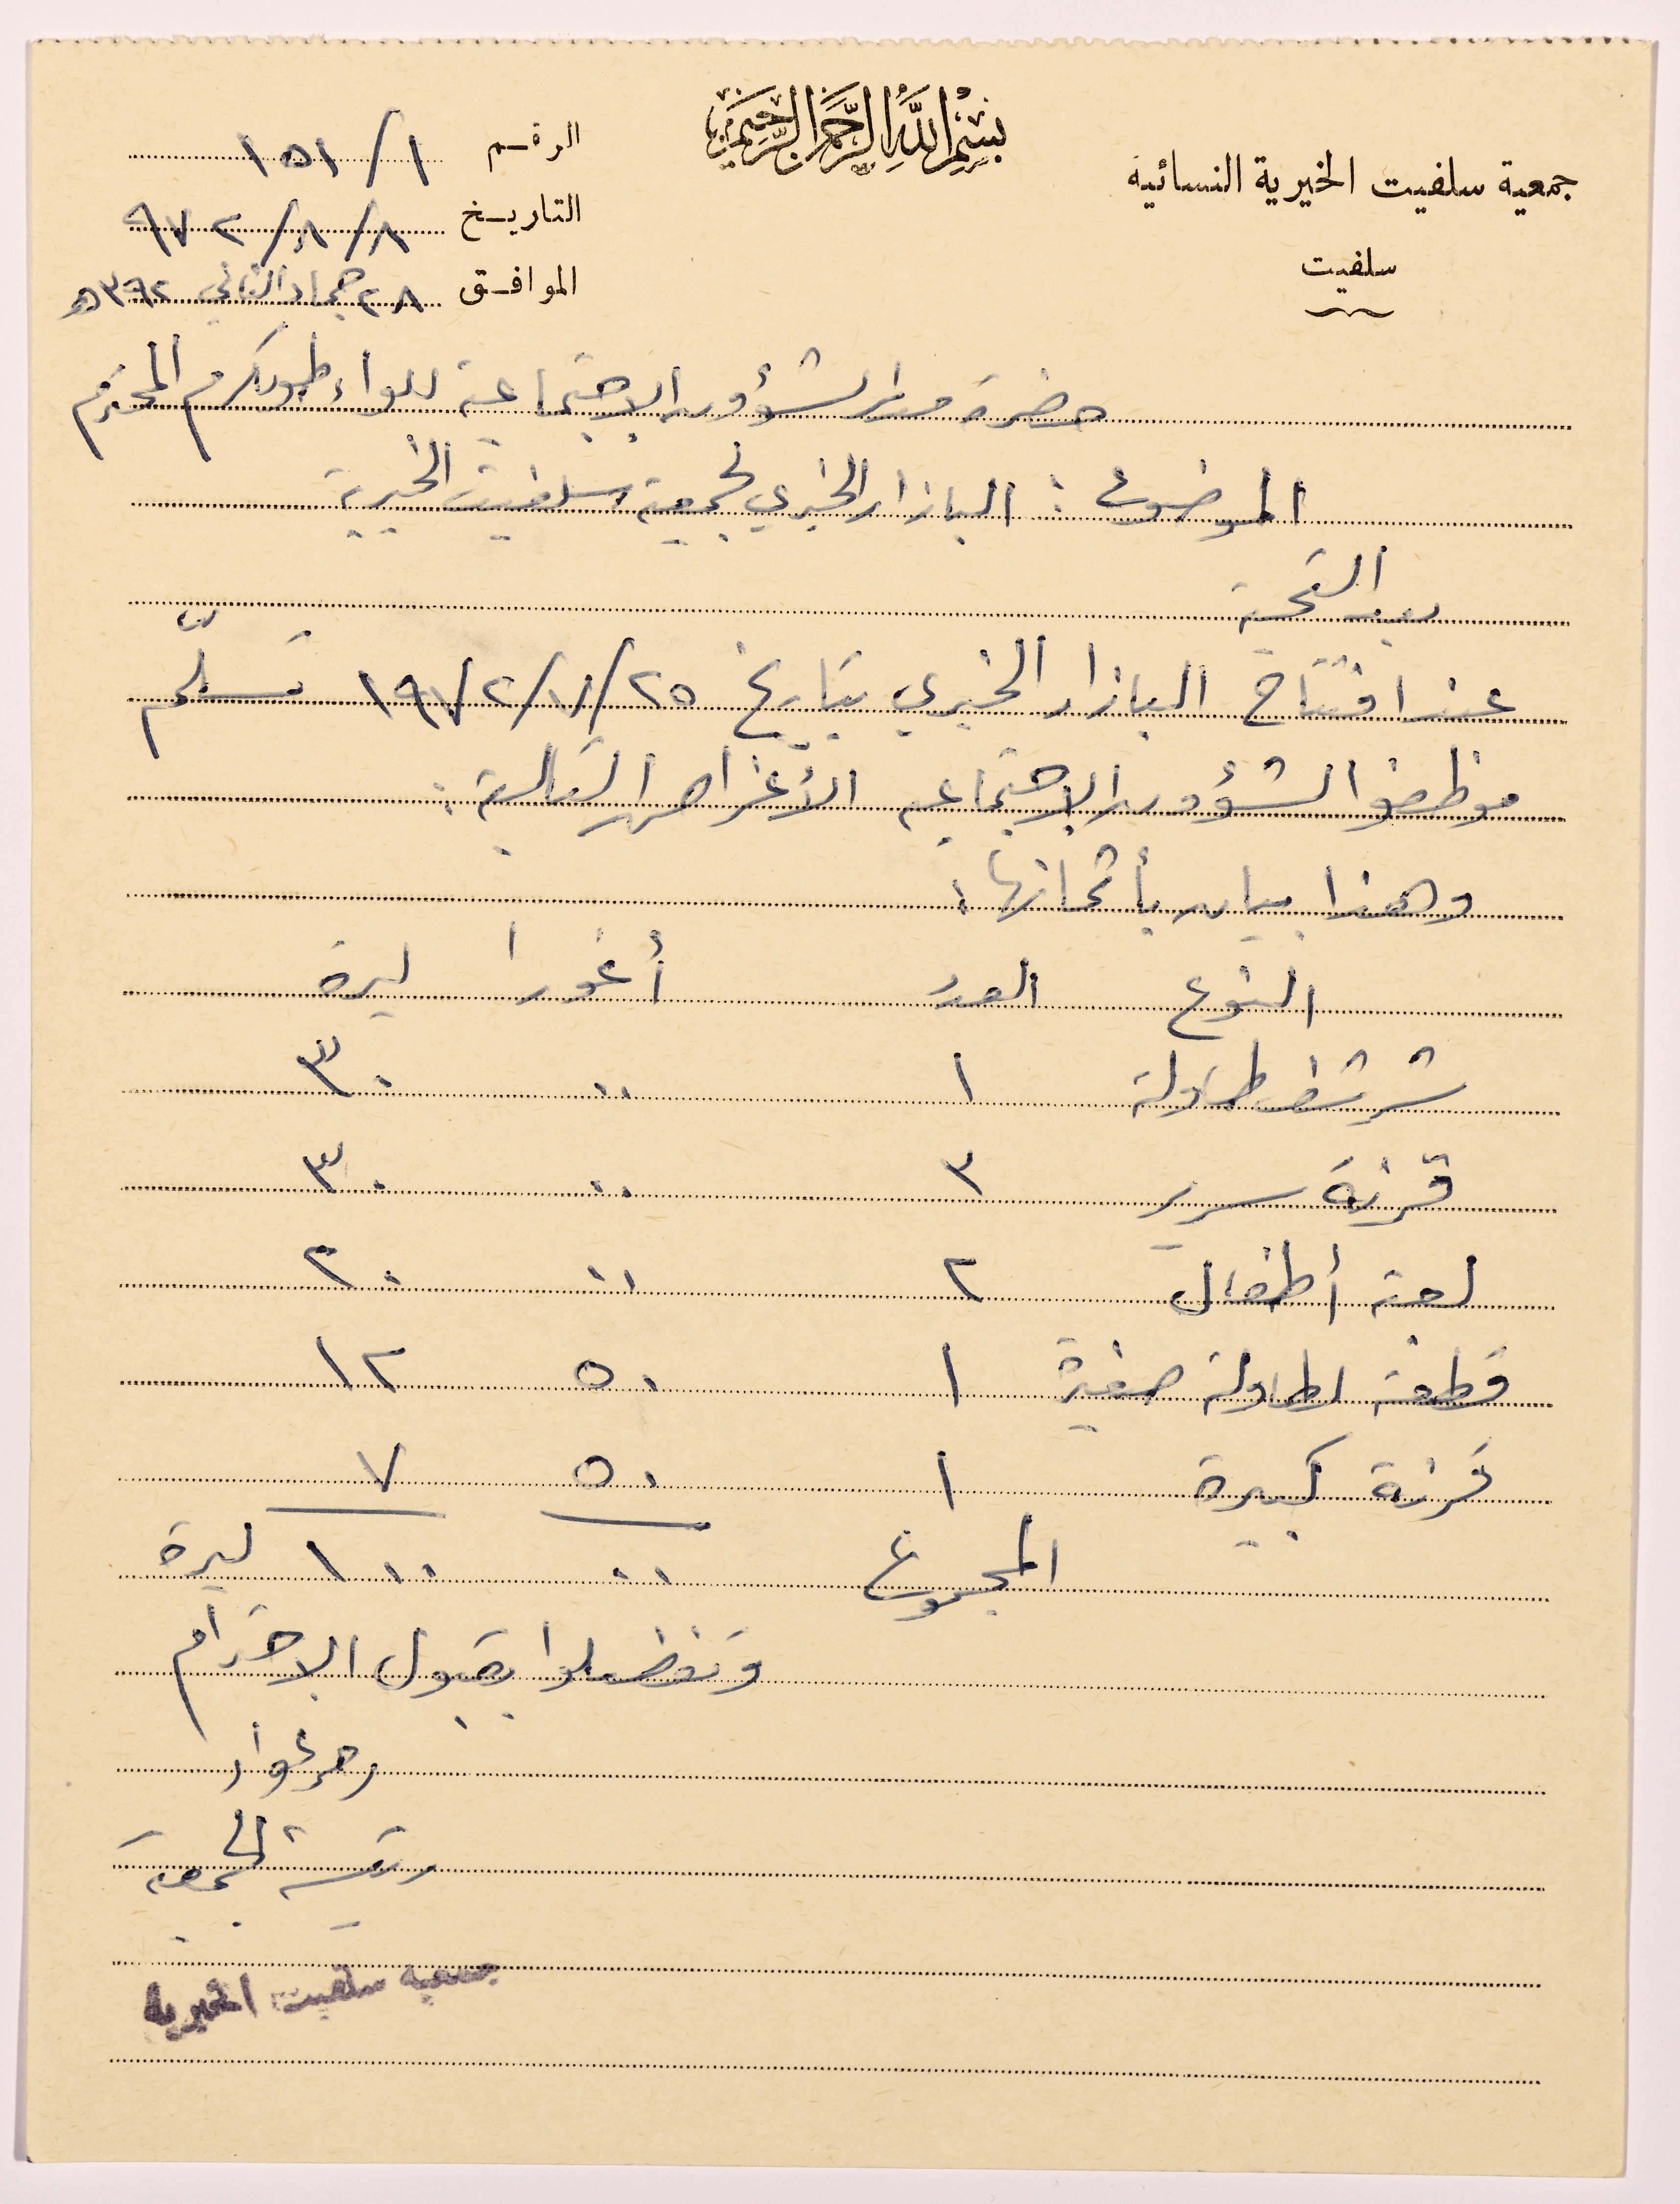 بسم الله الرحمن الرحيم
جمعية سلفيت الخيرية النسائية
سلفيت
الرقم ١/١٥١
التاريخ ٨/٨/٩٧٢
الموافق ٢٨ جماد الثاني ٣٩٢ھ
حضرة مدير الشؤون الاجتماعية للواء طولكرم المحترم
الموضوع : البازار الخيري لجمعية سلفيت الخيرية
بعد التحية
عند افتتاح البازار الخيري بتاريخ ٢٥/٧/١٩٧٢ تسلّم
موظفوا الشؤون الاجتماعيه الأغراض التالية :
وهذا بيان بأثمانها :
النوع العدد أغورا ليرة
شرشف طاولة ١ ٠٠ ٣٠
قرنة سرير ٣ ٠٠ ٣٠
لعبة أطفال ٢ ٠٠ ٢٠
قطعة لطاولة صغيرة ١ ٥٠ ١٢
قرنة كبيرة ١ ٥٠ ٧
المجموع ٠٠ ١٠٠ ليرة
وتفضلوا بقبول الاحترام
رئيسة الجمعية
جمعية سلفيت الخيرية